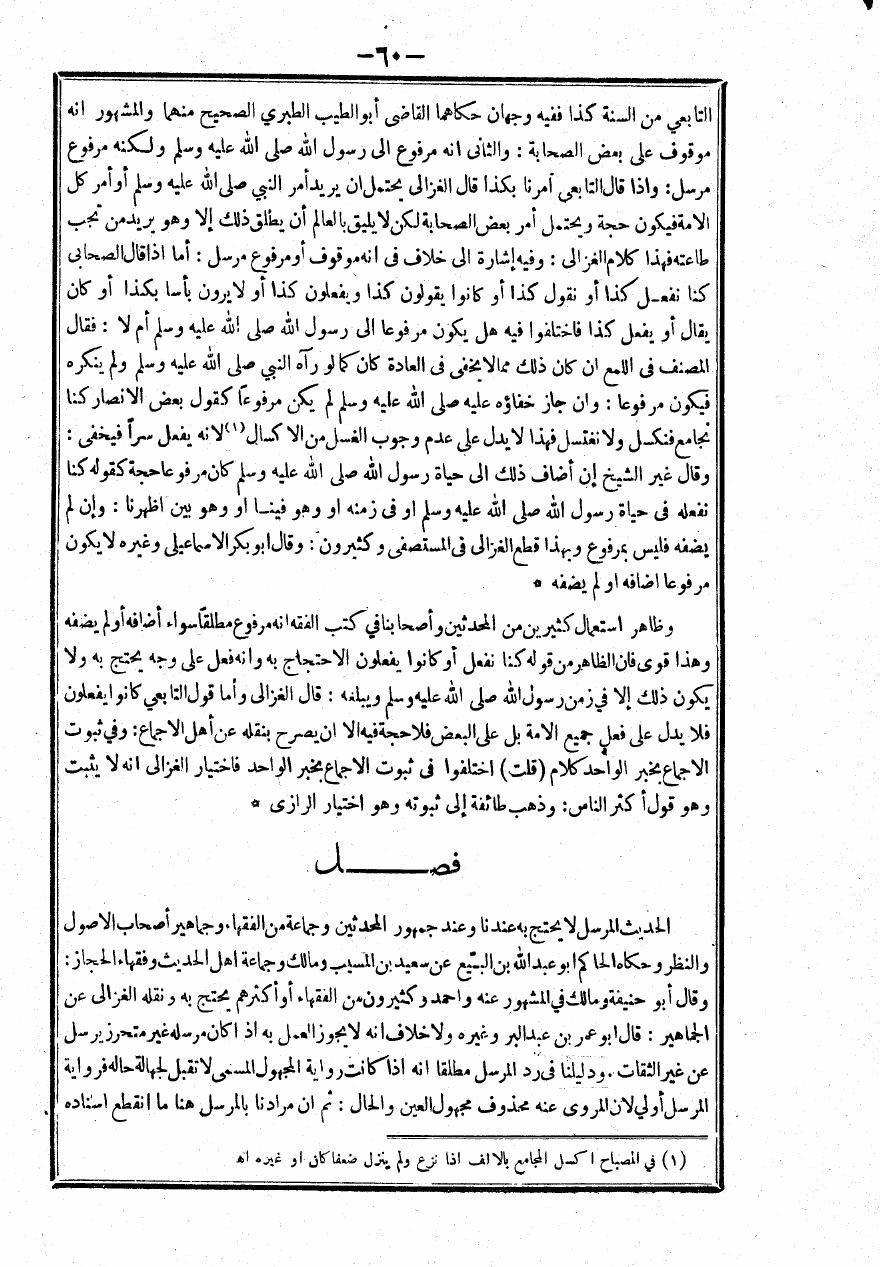 —٦٠—
التابعي من السنة كذا ففيه وجهان حكاهما القاضى أبوالطيب الطبري الصحيح منهما والمشهور انه
موقوف على بعض الصحابة : والثانى انه مرفوع الى رسول الله صلى الله عليه وسلم ولكنه مرفوع
مرسل: واذا قال التابعى أمرنا بكذا قال الغزالى يحتمل ان يريد أمر النبي صلى الله عليه وسلم أو أمر كل
الامة فيكون حجة ويحتمل أمر بعض الصحابة لكن لا يليق بالعالم أن يطلق ذلك إلا وهو يريد من تجب
طاعته فهذا كلام الغزالى : وفيه إشارة الى خلاف فى انه موقوف أو مرفوع مرسل : أما اذا قال الصحابى
كنا نفعل كذا أو نقول كذا أو كانوا يقولون كذا ويفعلون كذا أو لا يرون بأسا بكذا أو كان
يقال أو يفعل كذا فاختلفوا فيه هل يكون مرفوعا الى رسول الله صلى الله عليه وسلم أم لا : فقال
المصنف فى اللمع ان كان ذلك مما لا يخفى فى العادة كان كما لو رآه النبي صلى الله عليه وسلم ولم ينكره
فيكون مرفوعا : وان جاز خفاؤه عليه صلى الله عليه وسلم لم يكن مرفوعاً كقول بعض الانصار كنا
نجامع فنكسل ولا نغتسل فهذا لا يدل على عدم وجوب الغسل من الاكسال (١) لانه يفعل سراً فيخفى :
وقال غير الشيخ إن أضاف ذلك الى حياة رسول الله صلى الله عليه وسلم كان مرفوعا حجة كقوله كنا
نفعله فى حياة رسول الله صلى الله عليه وسلم او فى زمنه او وهو فينا او وهو بين اظهرنا : وإن لم
يضفه فليس بمرفوع وبهذا قطع الغزالى فى المستصفى وكثيرون : وقال ابو بكر الاسماعيلى وغيره لا يكون
مرفوعا اضافه او لم يضفه *
وظاهر استعمال كثيرين من المحدثين وأصحابنا في كتب الفقه انه مرفوع مطلقاً سواء أضافه أو لم يضفه
وهذا قوى فان الظاهر من قوله كنا نفعل أو كانوا يفعلون الاحتجاج به وانه فعل على وجه يحتج به ولا
يكون ذلك إلا في زمن رسول الله صلى الله عليه وسلم ويبلغه : قال الغزالى وأما قول التابعي كانوا يفعلون
فلا يدل على فعل جميع الامة بل على البعض فلا حجة فيه الا ان يصرح بنقله عن أهل الاجماع: وفي ثبوت
الاجماع بخبر الواحد كلام (قلت) اختلفوا فى ثبوت الاجماع بخبر الواحد فاختيار الغزالى انه لا يثبت
وهو قول أكثر الناس: وذهب طائفة إلى ثبوته وهو اختيار الرازى *
فصـــــل
الحديث المرسل لا يحتج به عندنا وعند جمهور المحدثين وجماعة من الفقهاء وجماهير أصحاب الاصول
والنظر وحكاه الحاكم ابو عبد الله بن البيّع عن سعيد بن المسيب ومالك وجماعة اهل الحديث وفقهاء الحجاز :
وقال أبو حنيفة ومالك في المشهور عنه واحمد وكثيرون من الفقهاء أو أكثرهم يحتج به ونقله الغزالى عن
الجماهير : قال ابو عمر بن عبد البر وغيره ولا خلاف انه لا يجوز العمل به اذا كان مرسله غير متحرز يرسل
عن غير الثقات . ودليلنا فى رد المرسل مطلقا انه اذا كانت رواية المجهول المسمى لا تقبل لجهالة حاله فرواية
المرسل أولي لان المروى عنه محذوف مجهول العين والحال : ثم ان مرادنا بالمرسل هنا ما انقطع اسناده
(١) في المصباح اكسل المجامع بالالف اذا نزع ولم ينزل ضعفا كان او غيره اه